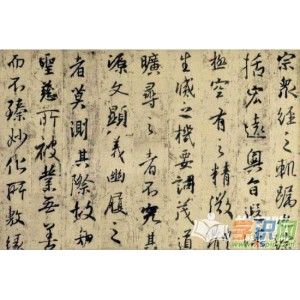 宗眾經之軌躅
括宏遠奧旨遐
極空有之精微
生滅之機要詞茂道
曠尋之者不究其
源文顯義幽履之
者莫測其際故知
聖慈所被業無善
而不臻妙化所敷緣
学识网